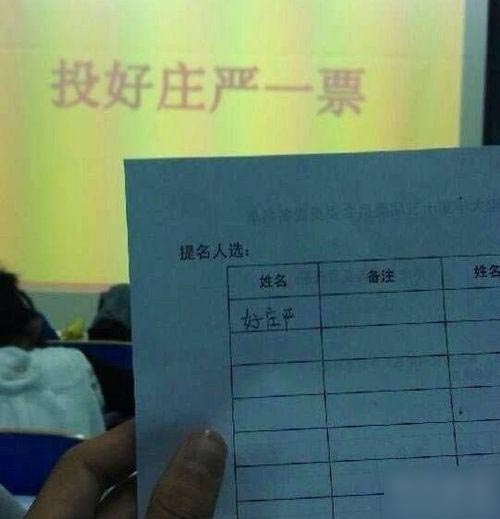 投好庄严一票
提名人选：
姓名 备注 姓名
好庄严